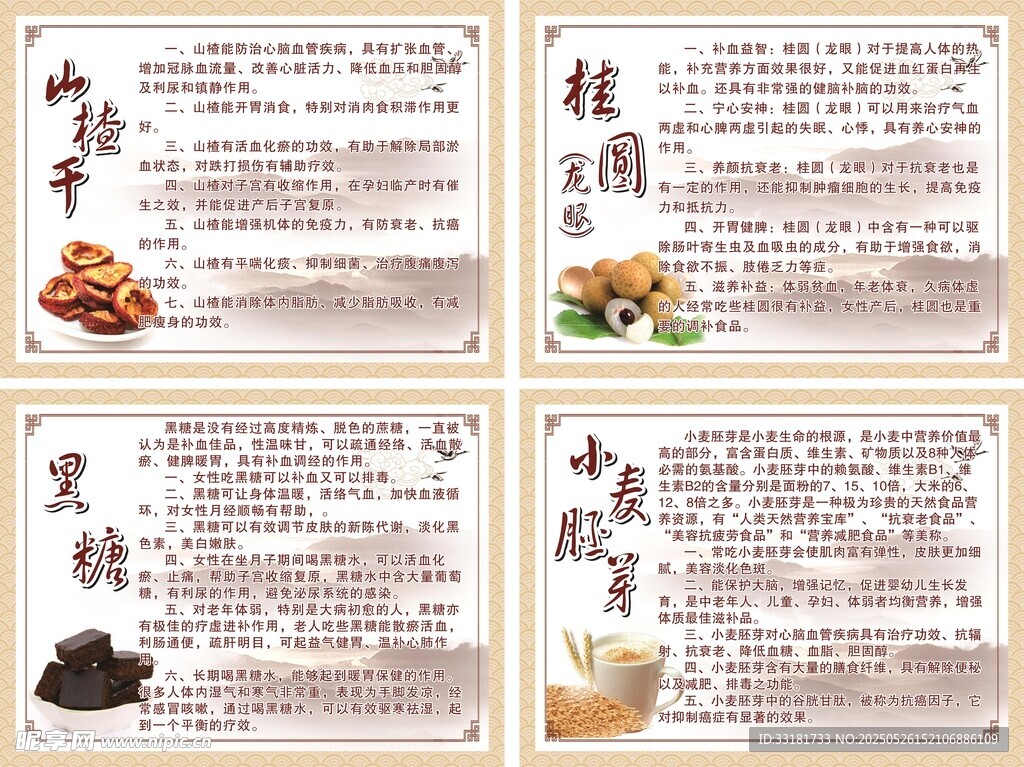 山楂干
一、山楂能防治心脑血管疾病，具有扩张血管、
增加冠脉血流量、改善心脏活力、降低血压和胆固醇
及利尿和镇静作用。
二、山楂能开胃消食，特别对消肉食积滞作用更
好。
三、山楂有活血化瘀的功效，有助于解除局部淤
血状态，对跌打损伤有辅助疗效。
四、山楂对子宫有收缩作用，在孕妇临产时有催
生之效，并能促进产后子宫复原。
五、山楂能增强机体的免疫力，有防衰老、抗癌
的作用。
六、山楂有平喘化痰、抑制细菌、治疗腹痛腹泻
的功效。
七、山楂能消除体内脂肪、减少脂肪吸收，有减
肥瘦身的功效。
桂圆
（龙眼）
一、补血益智：桂圆（龙眼）对于提高人体的热
能，补充营养方面效果很好，又能促进血红蛋白再生
以补血。还具有非常强的健脑补脑的功效。
二、宁心安神：桂圆（龙眼）可以用来治疗气血
两虚和心脾两虚引起的失眠、心悸，具有养心安神的
作用。
三、养颜抗衰老：桂圆（龙眼）对于抗衰老也是
有一定的作用，还能抑制肿瘤细胞的生长，提高免疫
力和抵抗力。
四、开胃健脾：桂圆（龙眼）中含有一种可以驱
除肠叶寄生虫及血吸虫的成分，有助于增强食欲，消
除食欲不振、肢倦乏力等症。
五、滋养补益：体弱贫血，年老体衰，久病体虚
的人经常吃些桂圆很有补益，女性产后，桂圆也是重
要的调补食品。
黑糖
黑糖是没有经过高度精炼、脱色的蔗糖，一直被
认为是补血佳品，性温味甘，可以疏通经络、活血散
瘀、健脾暖胃，具有补血调经的作用。
一、女性吃黑糖可以补血又可以排毒。
二、黑糖可让身体温暖，活络气血，加快血液循
环，对女性月经顺畅有帮助，。
三、黑糖可以有效调节皮肤的新陈代谢，淡化黑
色素，美白嫩肤。
四、女性在坐月子期间喝黑糖水，可以活血化
瘀、止痛，帮助子宫收缩复原，黑糖水中含大量葡萄
糖，有利尿的作用，避免泌尿系统的感染。
五、对老年体弱，特别是大病初愈的人，黑糖亦
有极佳的疗虚进补作用，老人吃些黑糖能散瘀活血，
利肠通便，疏肝明目，可起益气健胃、温补心肺作
用。
六、长期喝黑糖水，能够起到暖胃保健的作用。
很多人体内湿气和寒气非常重，表现为手脚发凉，经
常感冒咳嗽，通过喝黑糖水，可以有效驱寒祛湿，起
到一个平衡的疗效。
小麦胚芽
小麦胚芽是小麦生命的根源，是小麦中营养价值最
高的部分，富含蛋白质、维生素、矿物质以及8种人体
必需的氨基酸。小麦胚芽中的赖氨酸、维生素B1、维
生素B2的含量分别是面粉的7、15、10倍，大米的6、
12、8倍之多。小麦胚芽是一种极为珍贵的天然食品营
养资源，有“人类天然营养宝库”、“抗衰老食品”、
“美容抗疲劳食品”和“营养减肥食品”等美称。
一、常吃小麦胚芽会使肌肉富有弹性，皮肤更加细
腻，美容淡化色斑。
二、能保护大脑，增强记忆，促进婴幼儿生长发
育，是中老年人、儿童、孕妇、体弱者均衡营养，增强
体质最佳滋补品。
三、小麦胚芽对心脑血管疾病具有治疗功效、抗辐
射、抗衰老、降低血糖、血脂、胆固醇。
四、小麦胚芽含有大量的膳食纤维，具有解除便秘
以及减肥、排毒之功能。
五、小麦胚芽中的谷胱甘肽，被称为抗癌因子，它
对抑制癌症有显著的效果。
昵享网 www.nipic.cn
ID:33181733 NO:20250526152106886109